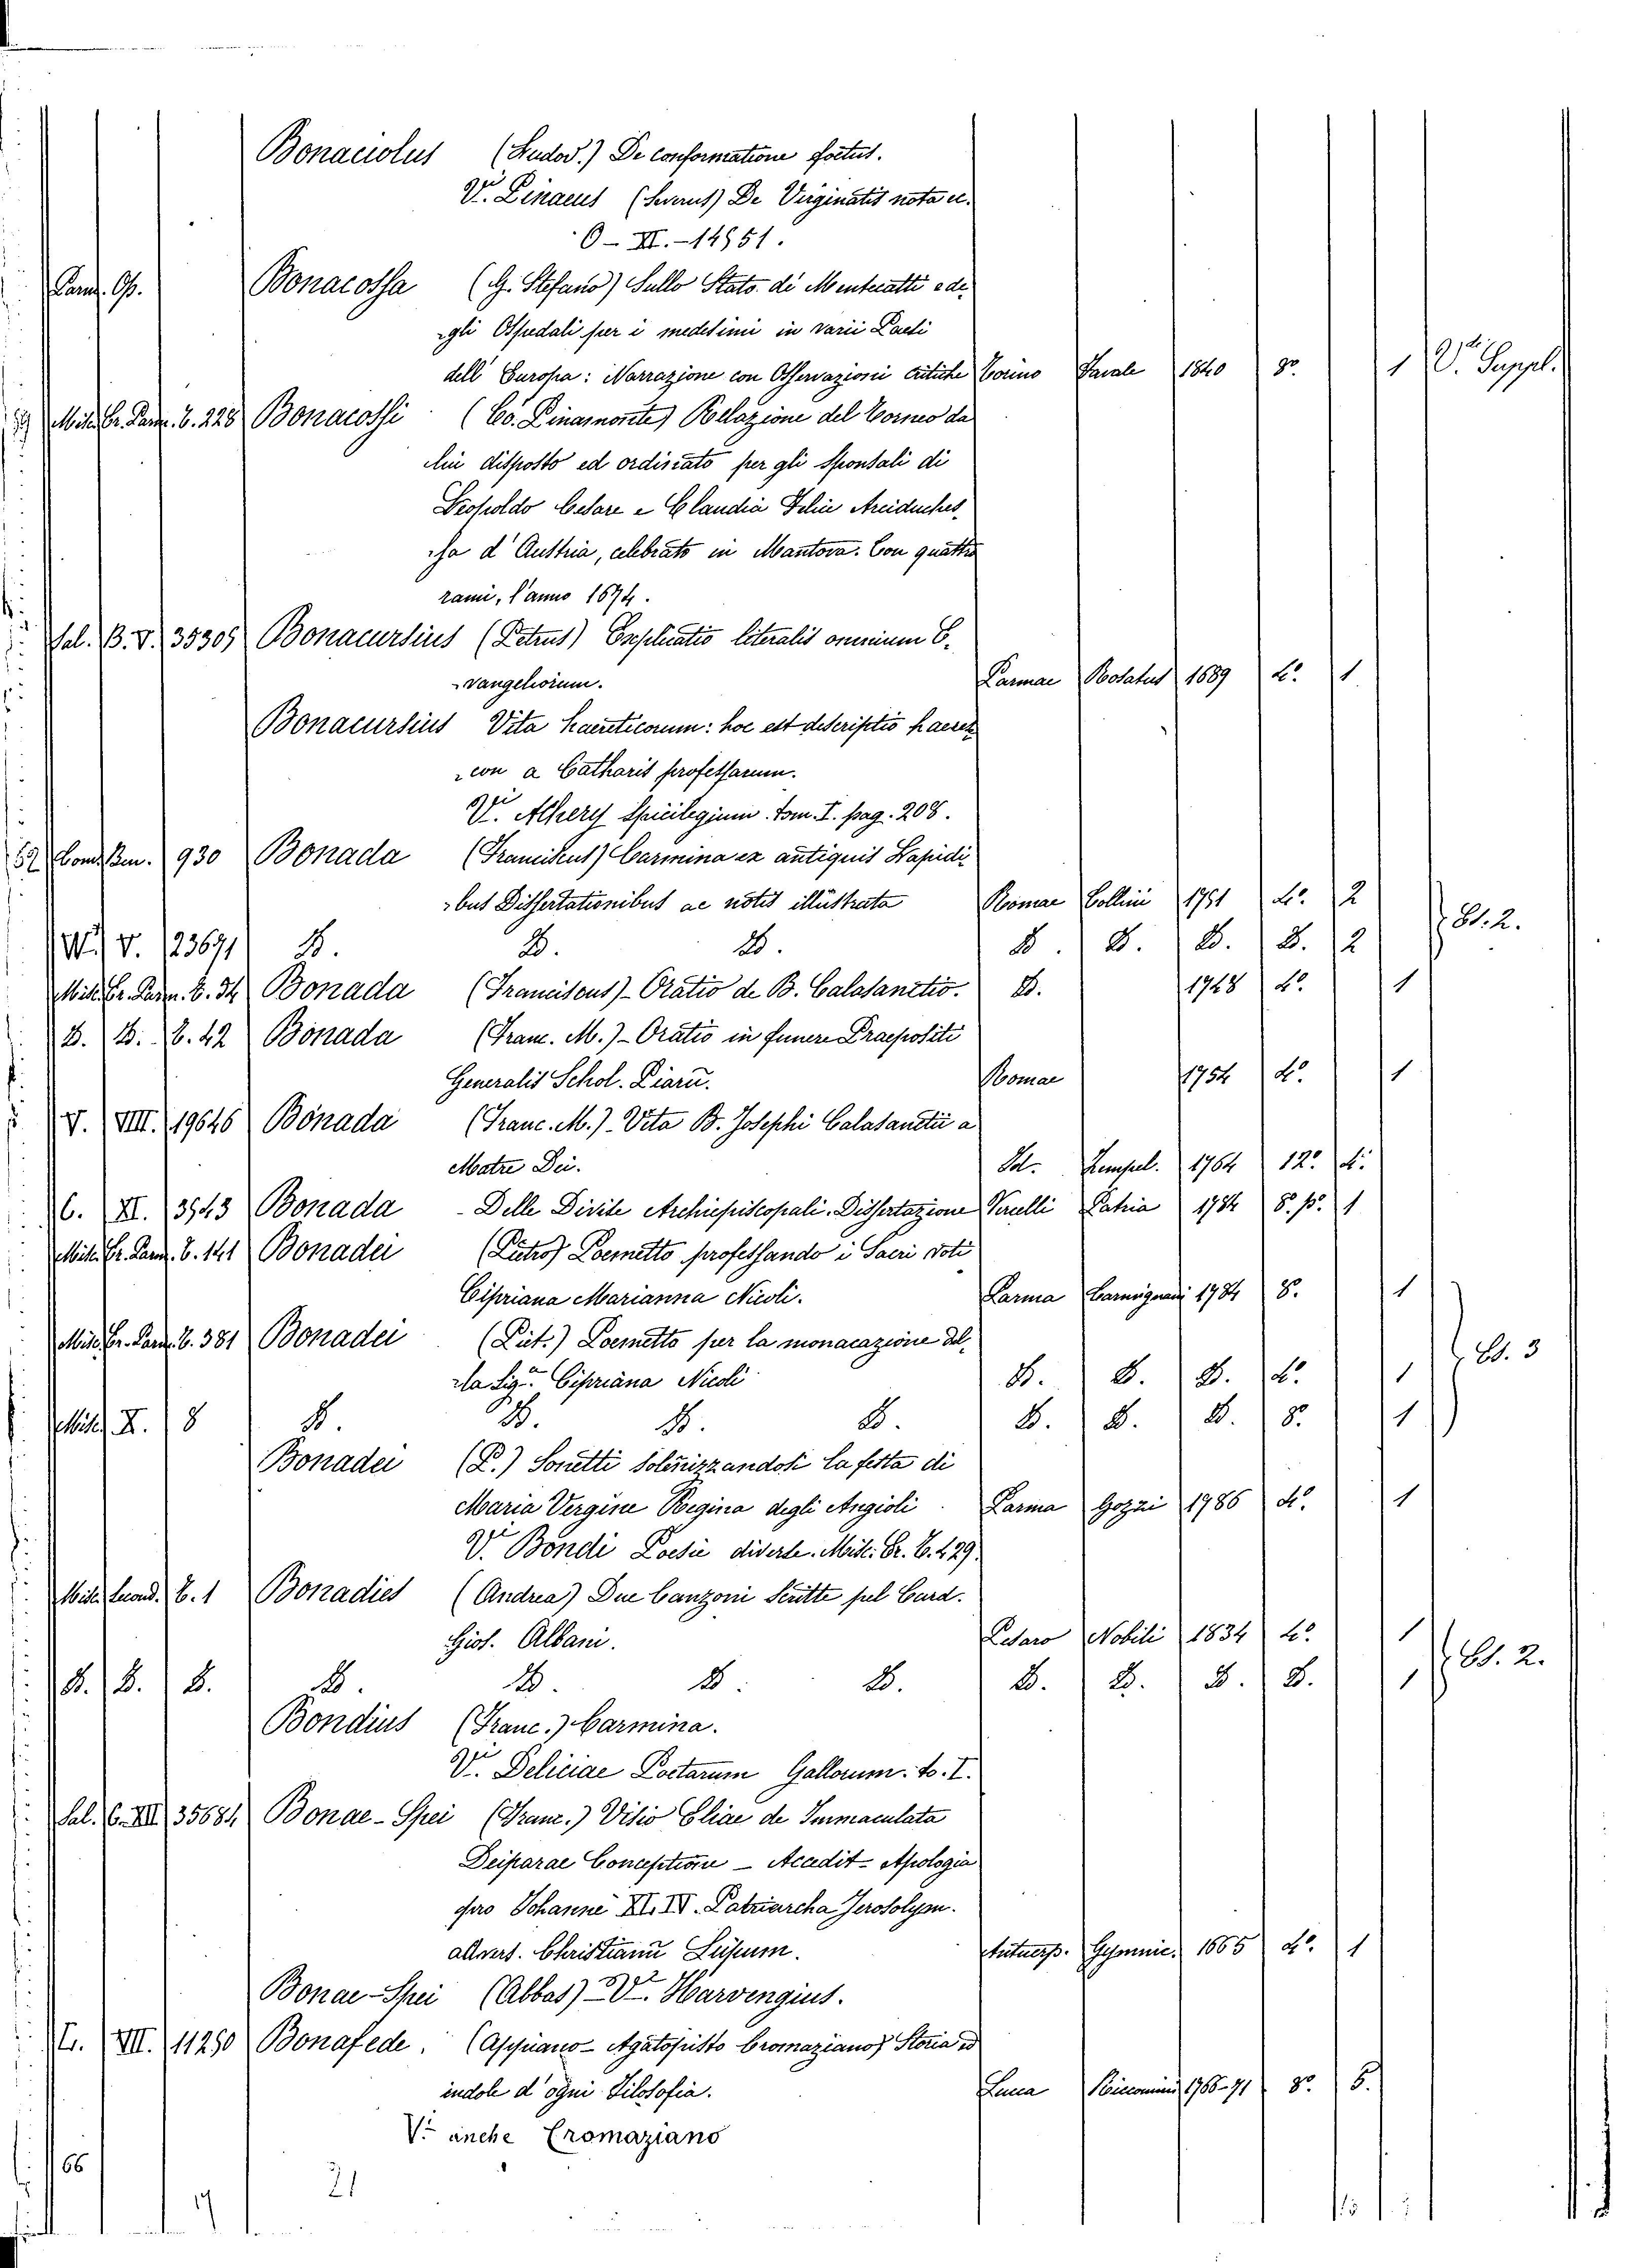 Bonaciolus (Ludov.) De conformatione foetus.
V. Pinaeus De Virginatis nota
O - XI. - 14951.
Parm. Op. Bonacossa (G. Stefano) Sullo Stato di Mentecatti e de
gli Ospedali per i medesimi in varii Paesi
dell' Europa: Narrazione con Osservazioni critiche Torino Favale 1840 8º 1 V. Suppl.
Misc. Er. Parm. C. 228 Bonacossi (Co. Pinamonte) Relazione del Torneo da
lui disposto ed ordinato per gli Sponsali di
Leopoldo Cesare e Claudia Felice Arciduches
sa d'Austria, celebrato in Mantova. Con quattro
rami, l'anno 1674.
Sal. B. V. 35305 Bonacursius (Petrus) Explicatio literalis omnium E
vangeliorum. Parmae Rosatus 1689 4º 1
Bonacursius Vita haereticorum: hoc est descriptio haere
con a Catharis professarum.
V. Achery Spicilegium tom. I. pag. 208.
930 Bonada (Franciscus) Carmina ex antiquis Lapidi
bus Dissertationibus ac notis illustrata Romae Collini 1751 4º 2
W. V. 23671 D. D. D. D. D. D. D. 2 Es. 2.
Misc. Er. Parm. C. 34 Bonada (Franciscus) - Oratio de B. Calasanctio. D. 1748 4º 1
D. D. C. 42 Bonada (Franc. M.) - Oratio in funere Praepositi
Generalis Schol. Piarū. Romae 1754 4º 1
V. VIII. 19646 Bonada (Franc. M.) - Vita B. Josephi Calasanctii a
Matre Dei. 1764 12º
C. XI. 3543 Bonada - Delle Divise Archiepiscopali. Dissertazione Vercelli Patria 1784 8º p. 1
Misc. Er. Parm. C. 141 Bonadei (Pietro) Poemetto professando i Sacri voti
Cipriana Marianna Nicoli. Parma Carmignani 1784 8º 1
Misc. Er. Parm. C. 381 Bonadei (Piet.) Poemetto per la monacazione del
la Sig.ª Cipriana Nicoli D. D. D. 4º 1 Es. 3
Misc. X. 8 D. D. D. D. D. D. D. 8º 1
Bonadei (P.) Sonetti solenizzandosi la festa di
Maria Vergine Regina degli Angioli. Parma Gozzi 1786 4º 1
V. Bondi Poesie diverse. Misc. Er. C. 429.
Misc. C. 1 Bonadies (Andrea) Due Canzoni scritte pel Card.
Gios. Albani. Pesaro Nobili 1834 4º 1
D. D. D. D. D. D. D. D. D. D. D. 1 Es. 2.
Bondius (Franc.) Carmina.
V. Deliciae Poetarum Gallorum. to. I.
Sal. C. XII 35684 Bonae-Spei (Franc.) Visio Eliae de Immaculata
Deiparae Conceptione - Accedit - Apologia
pro Johanne XLIV. Patriarcha Jerosolym.
advers. Christianū Lupum. Antuerp. Gymnic. 1665 4º 1
Bonae-Spei (Abbas) - V. Harvengius.
VIII. 11250 Bonafede. (Appiano - Agatopisto Cromaziano) Storia ed
indole d'ogni Filosofia. Lucca Riccomini 1766-71 8º 5.
V. anche Cromaziano
66
17
21